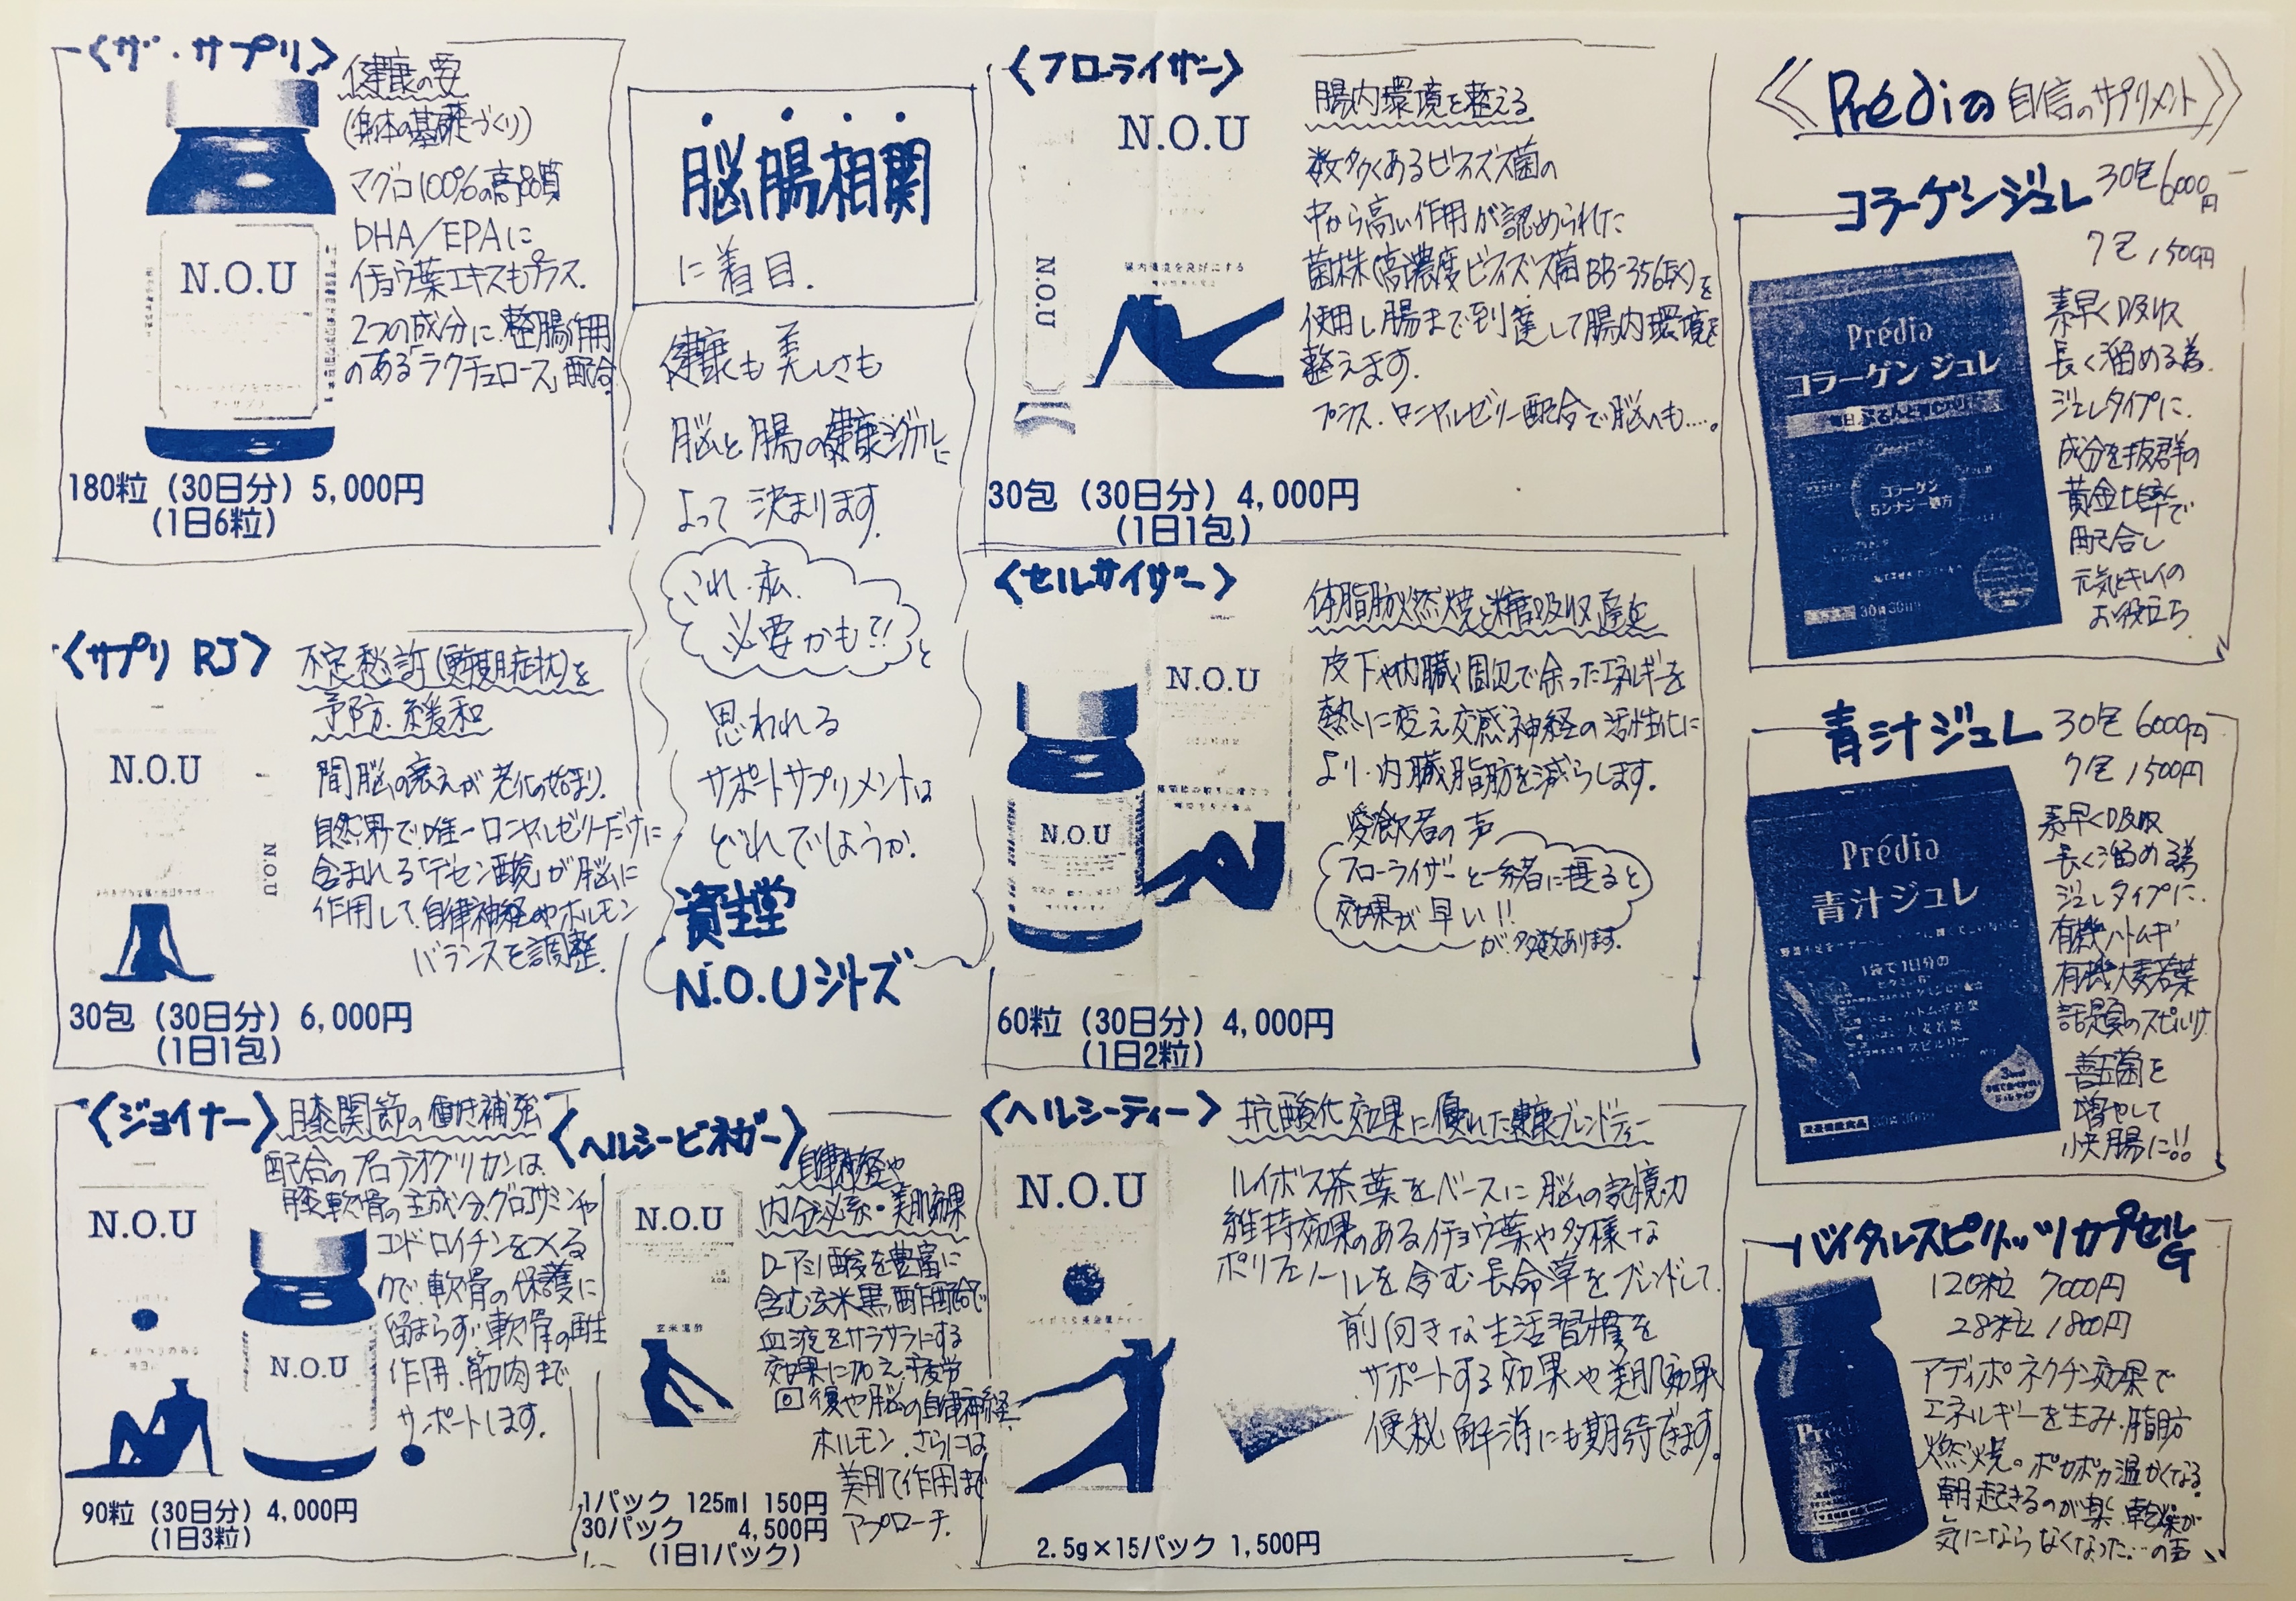 〈ザ・サプリ〉
健康の要
(身体の基礎づくり)
マグロ100%の高品質
DHA/EPAに
イチョウ葉エキスもプラス.
2つの成分に.整腸作用
のある「ラクチュロース」配合
N.O.U
180粒（30日分）5,000円
（1日6粒）
〈サプリ RJ〉
不定愁訴(更年期症状)を
予防.緩和
間脳の衰えが老化の始まり.
自然界で唯一ローヤルゼリーだけに
含まれる「デセン酸」が脳に
作用して.自律神経やホルモン
バランスを調整.
N.O.U
N.O.U
30包（30日分）6,000円
（1日1包）
〈ジョイナー〉
膝関節の働き補強
配合のプロテオグリカンは.
膝軟骨の主成分.グロコサミンや
コンドロイチンを
ので.軟骨の保護に
留まらず.軟骨の再生
作用.筋肉まで
サポートします.
N.O.U
N.O.U
90粒（30日分）4,000円
（1日3粒）
脳腸相関
に着目.
健康も美しさも
脳と腸の健康
よって決まります.
これ.私.
必要かも?!
と
思われる
サポートサプリメントは
どれでしょうか.
資生堂
N.O.Uシリーズ
〈ヘルシービネガー〉
自律神経や
内分泌系・美肌効果
アミノ酸を豊富に
含む玄米黒酢配合で
血液をサラサラにする
効果に加え.疲労
回復や脳の自律神経
ホルモン.さらには
美肌作用まで
アプローチ.
N.O.U
玄米黒酢
1パック 125ml 150円
30パック 4,500円
（1日1パック）
〈フローライザー〉
腸内環境を整える
数多くあるビフィズス菌の
中から高い作用が認められた
菌株(高濃度ビフィズス菌BB-356EX)を
使用し腸まで到達して腸内環境を
整えます.
プラス.ローヤルゼリー配合で脳へも....。
N.O.U
N.O.U
腸内環境を良好にする
30包（30日分）4,000円
（1日1包）
〈セルサイザー〉
体脂肪燃焼と糖吸収遅延
皮下や内臓周辺で余ったエネルギーを
熱に変え交感神経の活性化に
より.内臓脂肪を減らします.
愛飲者の声
フローライザーと一緒に摂ると
効果が早い!!
が.多数あります.
N.O.U
N.O.U
60粒（30日分）4,000円
（1日2粒）
〈ヘルシーティー〉
抗酸化効果に優れた健康ブレンドティー
ルイボス茶葉をベースに脳の記憶力
維持効果のあるイチョウ葉や多様な
ポリフェノールを含む長命草をブレンドして.
前向きな生活習慣を
サポートする効果や美肌効果
便秘解消にも期待できます.
N.O.U
2.5g×15パック 1,500円
《Prédiaの自信のサプリメント》
コラーゲンジュレ 30包6000円
7包1,500円
素早く吸収
長く溜める為.
ジュレタイプに.
成分を抜群の
黄金比率で
配合し
元気とキレイの
お役立ち
Prédia
コラーゲン ジュレ
コラーゲン
5シナジー処方
青汁ジュレ 30包6000円
7包1500円
素早く吸収
長く溜める為
ジュレタイプに.
有機ハトムギ
有機大麦若葉
話題のスピルリナ
善玉菌を
増やして
快腸に!!
Prédia
青汁ジュレ
1袋で1日分の
大麦若葉
スピルリナ
バイタルスピリッツカプセルG
120粒 7000円
28粒 1800円
アディポネクチン効果で
エネルギーを生み.脂肪
燃焼。ポカポカ温かくなる.
朝起きるのが楽.乾燥が
気にならなくなった...の声